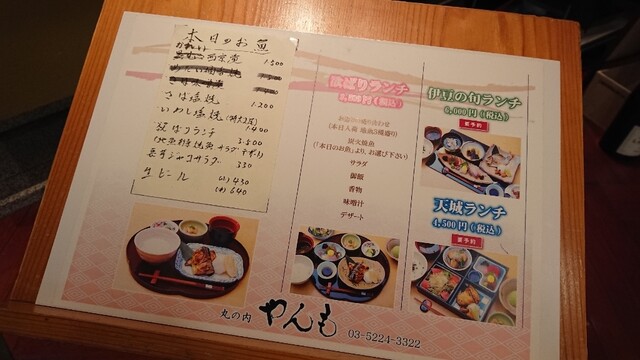 本日のお魚
西京産
1.500
さば塩焼
1.200
いわし塩焼
1.400
欲ばりランチ
3.500
サラダ
330
生ビール (小) 430
(中) 640
欲ばりランチ
(税込)
(本日入荷 地魚3種盛り)
炭火焼魚
(「本日のお魚」より、お選び下さい)
サラダ
御飯
香物
味噌汁
デザート
伊豆の旬ランチ
6,000円(税込)
要予約
天城ランチ
4,500円(税込)
要予約
丸の内 やんも 03-5224-3322